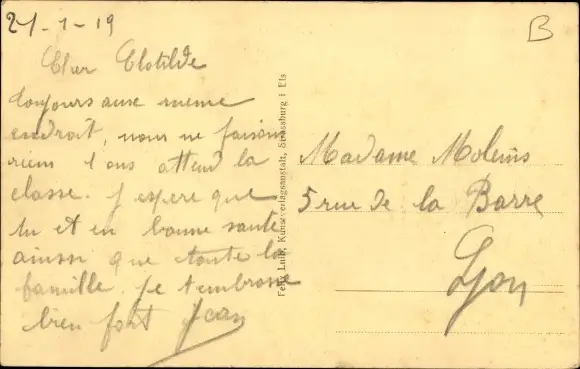 21-1-19
B
Cher Clotilde
toujours aux meme
endroit, nous ne faison
rien l ons attend la
classe. J espere que
tu et en bonne sante
ainssi que toute la
famille. Je t embrasse
bien fort Jean
Felix Luib, Kunstverlagsanstalt, Strassburg i Els
Madame Molinis
5 rue de la Barre
Lyon